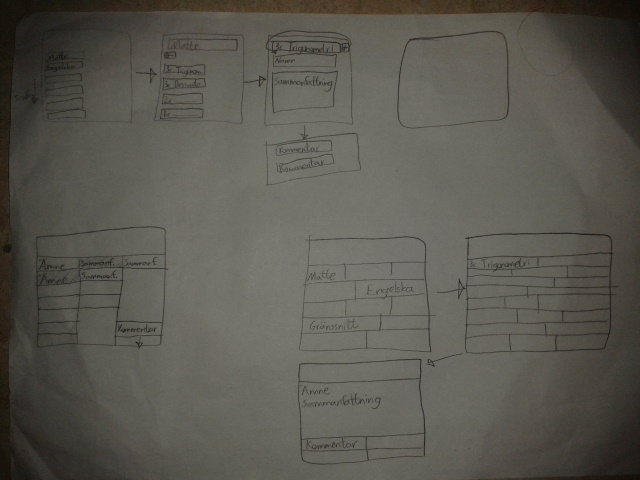 Matte
Engelska
Matte
Trigonometri
Namn
Sammanfattning
Kommentar
Kommentar
Ämne
Sammanf.
Sammanf.
Ämne
Sammanf.
Kommentar
Matte
Engelska
Gränssnitt
Trigonometri
Ämne
Sammanfattning
Kommentar